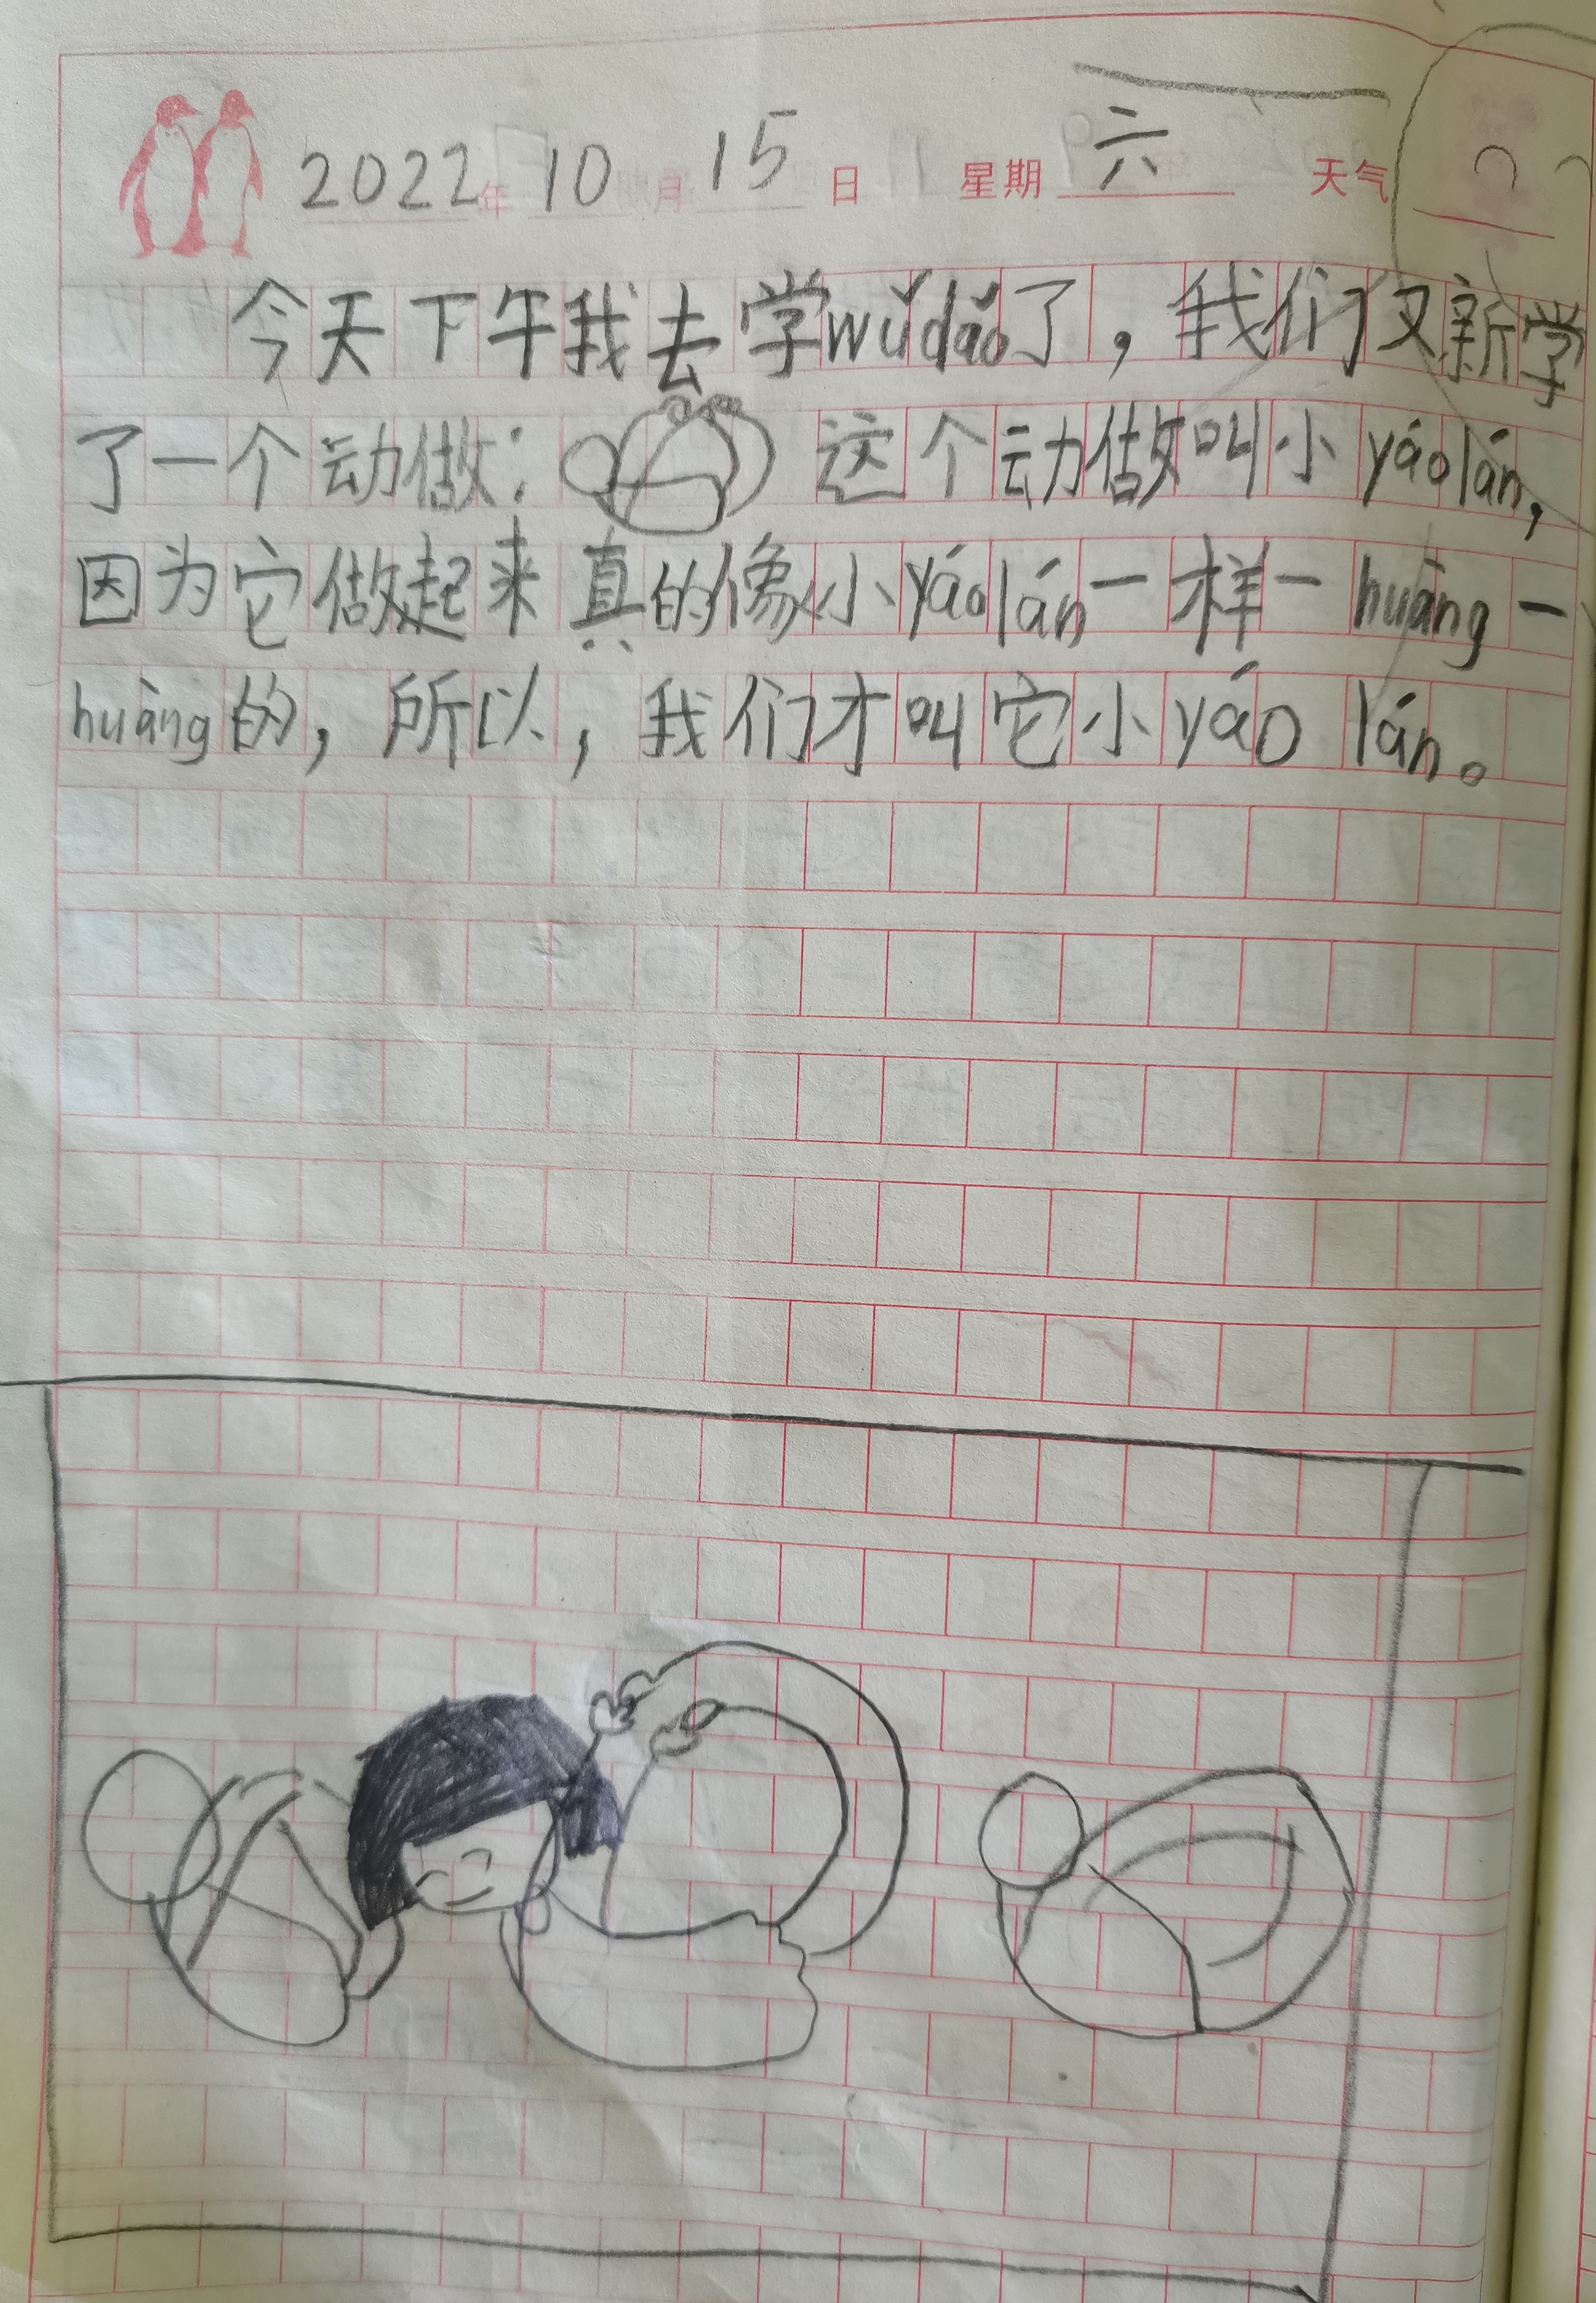 2022年 10月 15日 星期六 天气
今天下午我去学wǔdǎo了，我们又新学
了一个动做： 这个动做叫小yáolán，
因为它做起来真的像小yáolán一样一huàng一
huàng的，所以，我们才叫它小yáo lán。